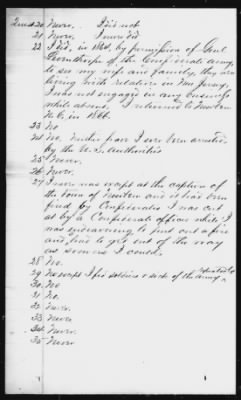 20 Never. I did not
21 Never. I never did
22 I did, in 1864, by permission of Genl
of the Confederate Army,
to see my wife and family, they are
living with relatives in New Jersey,
I was not engaged in any business
while absent. I returned to
N.C. in 1865.
23 No
24 No. neither have I ever been arrested
by the U.S. Authorities
25 Never.
26 Never.
27 I never was except at the capture of
the town of and it had been
fired by Confederates I was shot
at by a Confederate officer while I
was endeavoring to put out a fire
and, had to get out of the way
as soon as I could.
28 No.
29 No except I fed soldiers & sick of the army
30 No
31 No.
32 Never.
33 Never
34 Never.
35 Never